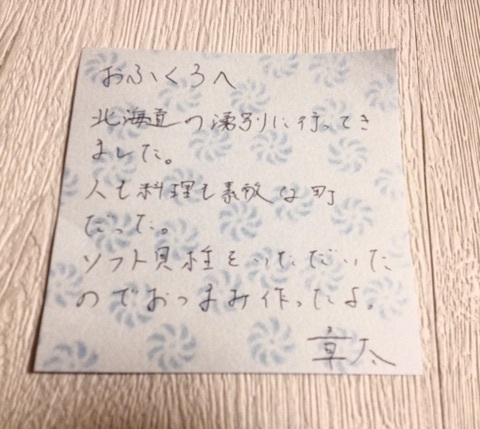 おふくろへ
北海道の湧別に行ってき
ました。
人も料理も素敵な町
だった。
ソフト貝柱をいただいた
のでおつまみ作ったよ。
章太